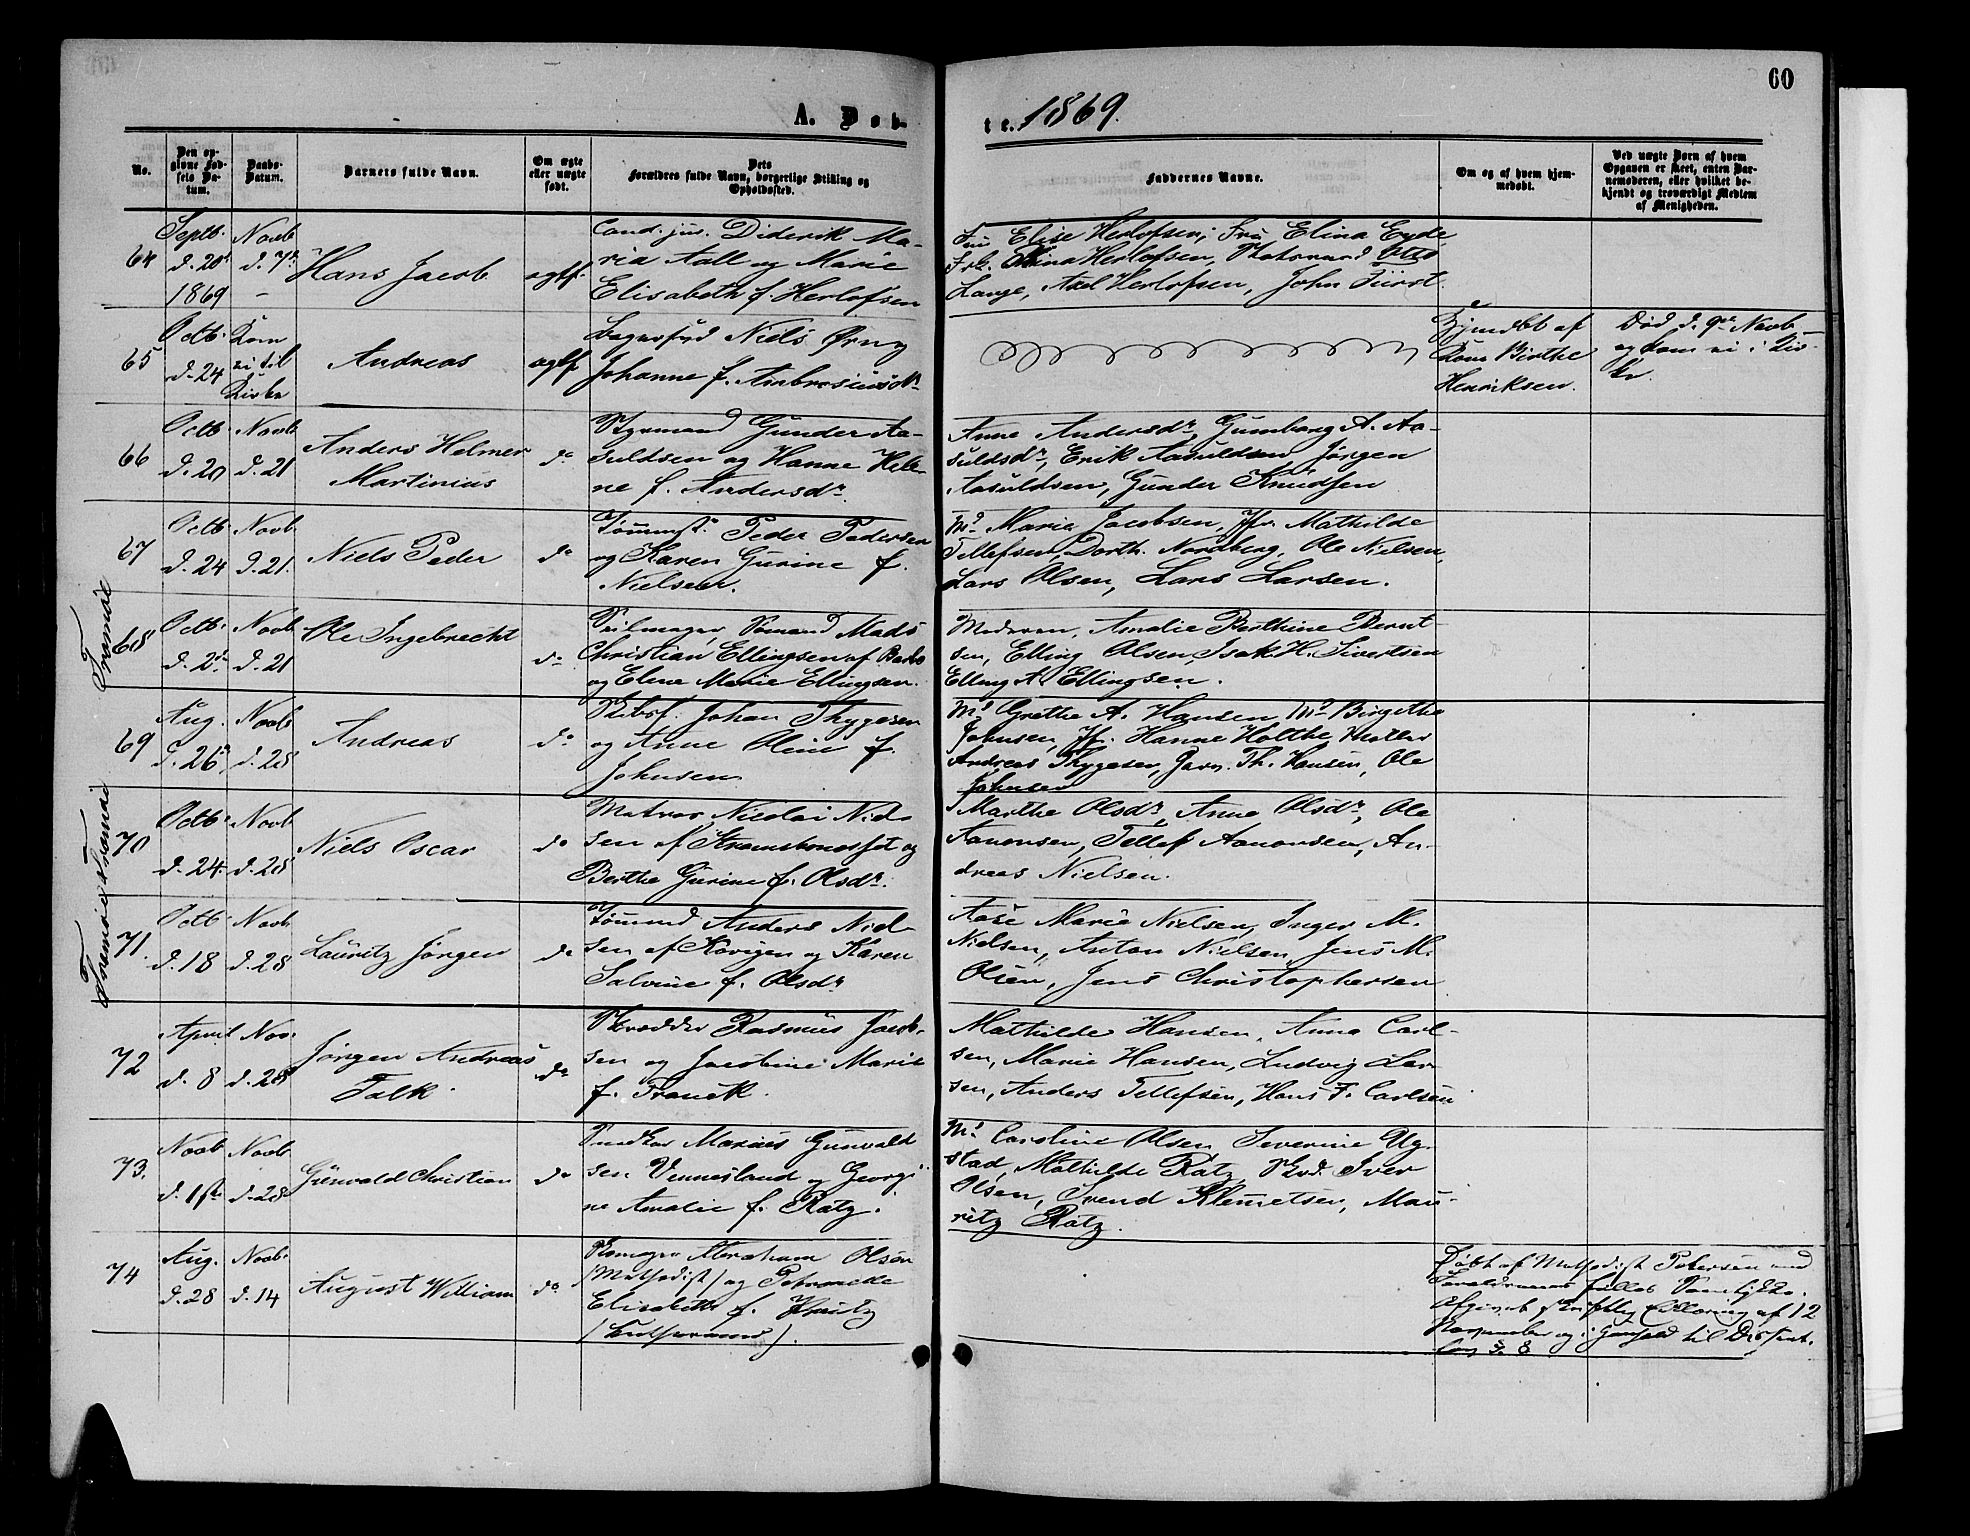 60
A. Døb-
te. 1869.
No.
Den op-
givne Fød-
sels Da-
tum.
Daabs-
Datum.
Barnets fulde Navn.
Om ægte
eller uægte
født.
Dets
Forældres fulde Navn, borgerlige Stilling og
Opholdssted.
Faddernes Navne.
Om og af hvem hjem-
medøbt.
Ved uægte Børn af hvem
Opgaven er skeet, enten Bar-
nemoderen, eller hvilket be-
kjendt og troværdigt Medlem
af Menigheden.
64
Septb.
d. 20de
1869
Novb
d. 7de
Hans Jacob
ægtf.
Cand. jur. Diderik Ma-
ria Aall og Marie
Elisabeth f. Herlofsen
Fru Elise Herlofsen; Fru Elina Eyde
Frk. Herlofsen, Otto
Lange, Axel Herlofsen, John Fürst.
65
Octb.
d. 24
Kom
ei til
Kirke
Andreas
ægtf
Niels Ørny
Johanne f. Ambrosiusdr
Hjemdbt af
Birthe
Henriksen.
Død d. 9de Novb
og kom ei i Kir-
ke.
66
Octb
d. 20
Novb
d. 21
Anders Helmer
Martinius
do
Styrmand Gunder Aa-
suldsen og Hanne Hele-
ne f. Andersdr.
Anne Andersdr, Gunborg A. Aa-
suldsdr, Erik Aasuldsen Jørgen
Aasuldsen, Gunder Knudsen
67
Octb
d. 24
Novb
d. 21.
Niels Peder
do
Tømmst. Peder Pedersen
og Karen Gurine f.
Nielsen.
Md Maria Jacobsen, Jfr. Mathilde
Tellefsen, Dorth. Nordberg, Ole Nielsen,
Lars Olsen, Lars Larsen.
Tromøe
68
Octb.
d. 2den
Novb
d. 21
Ole Ingebrecht
do
Seilmager, Sømand Mads
Christian Ellingsen af
og Elene Marie Ellingsen.
Moderen, Amalie Berthine Bernt-
sen, Elling Olsen, Isak H. Sivertsen
Elling A. Ellingsen.
69
Aug.
d. 26
Novb
d. 28
Andreas
do
Skibsf. Johan Thygesen
og Anne Oline f.
Johnsen
Md Grethe A. Hansen Md Birgithe
Johnsen, Jfr. Hanne Holthe
Andreas Thygesen, Th. Hansen, Ole
Johnsen
70
Octb.
d. 24.
Novb
d. 28
Niels Oscar
do
Matros Nicolai Niel-
sen af og
Berthe Gurine f. Olsdr.
Marthe Olsdr, Anne Olsdr, Ole
Aanonsen, Tellef Aanonsen, An-
dreas Nielsen.
71.
Octb
d. 18
Novb
d. 28
Lauritz Jørgen
do
Tømmd Anders Niel-
sen af og Karen
Salvine f. Olsdr
Aase Marie Nielsen, Inger M.
Nielsen, Anton Nielsen, Jens M.
Olsen, Jens Christophersen
72
April
d. 8
Nov.
d. 28
Jørgen Andreas
Falk.
do
Skrædder Rasmus Jacob-
sen og Jacobine Marie
f. Franck.
Mathilde Hansen, Anna Carl-
sen, Marie Hansen, Ludvig Lar-
sen, Anders Tellefsen, Hans F. Carlsen
73.
Novb
d. 1ste
Novb
d. 28
Gunvald Christian
do
Snedker Marius Gunvald
sen Vennesland og Georgi
ne Amalie f. Ratz.
Md Caroline Olsen Severine Ug-
stad, Mathilde Ratz, Iver
Olsen, Svend Klemetsen, Mau-
ritz Ratz.
74
Aug.
d. 28
Novb.
d. 14
August William
do
Skomager Abraham Olsen
(Methodist) og Petronelle
Elisabeth f.
(Lutheraner).
Døbt af Methodist Petersen med
Forældrenes fælles Samtykke.
Afgivet skriftlig Erklæring af 12
November og i Henhold til Dissent.
lov § 8